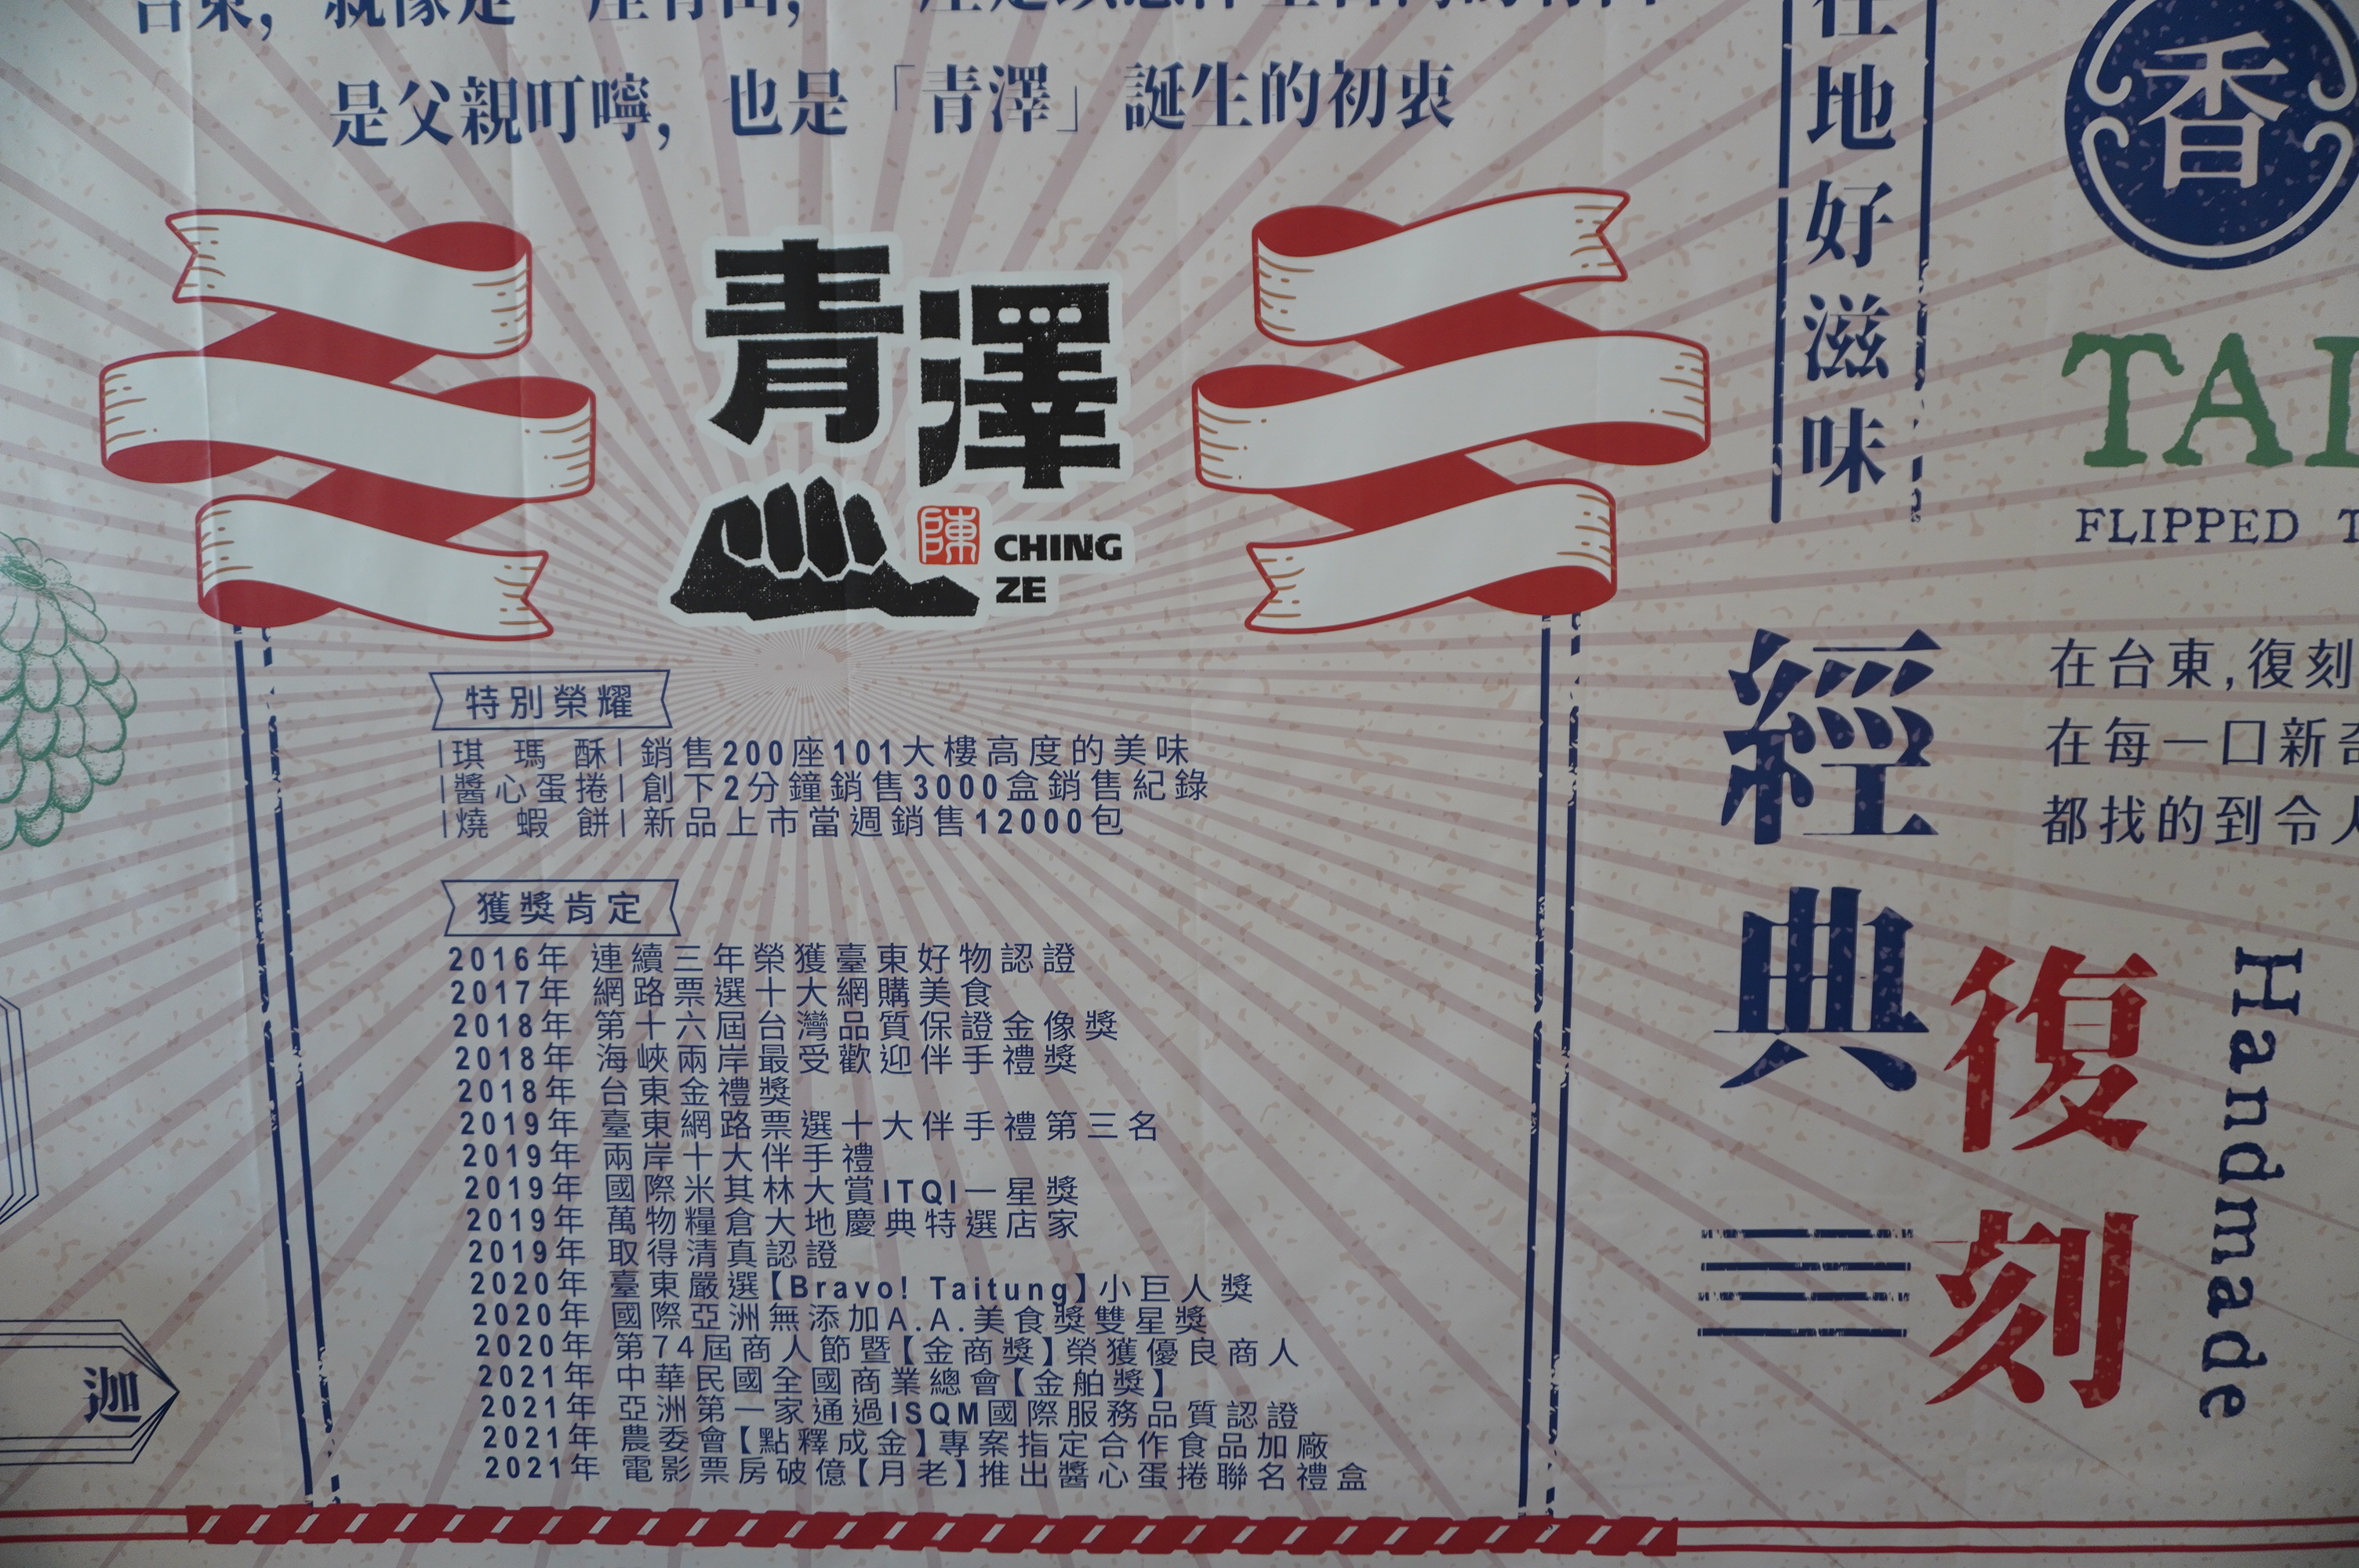 是父親叮嚀，也是「青澤」誕生的初衷
青澤
陳
CHING
ZE
特別榮耀
|琪瑪酥| 銷售200座101大樓高度的美味
|醬心蛋捲| 創下2分鐘銷售3000盒銷售紀錄
|燒蝦餅| 新品上市當週銷售12000包
獲獎肯定
2016年 連續三年榮獲臺東好物認證
2017年 網路票選十大網購美食
2018年 第十六屆台灣品質保證金像獎
2018年 海峽兩岸最受歡迎伴手禮獎
2018年 台東金禮獎
2019年 臺東網路票選十大伴手禮第三名
2019年 兩岸十大伴手禮
2019年 國際米其林大賞ITQI一星獎
2019年 萬物糧倉大地慶典特選店家
2019年 取得清真認證
2020年 臺東嚴選【Bravo! Taitung】小巨人獎
2020年 國際亞洲無添加A.A.美食獎雙星獎
2020年 第74屆商人節暨【金商獎】榮獲優良商人
2021年 中華民國全國商業總會【金舶獎】
2021年 亞洲第一家通過ISQM國際服務品質認證
2021年 農委會【點釋成金】專案指定合作食品加廠
2021年 電影票房破億【月老】推出醬心蛋捲聯名禮盒
迦
在地好滋味
香
TAI
FLIPPED T
經典
復刻
在台東,復刻
在每一口新奇
都找的到令人
Handmade